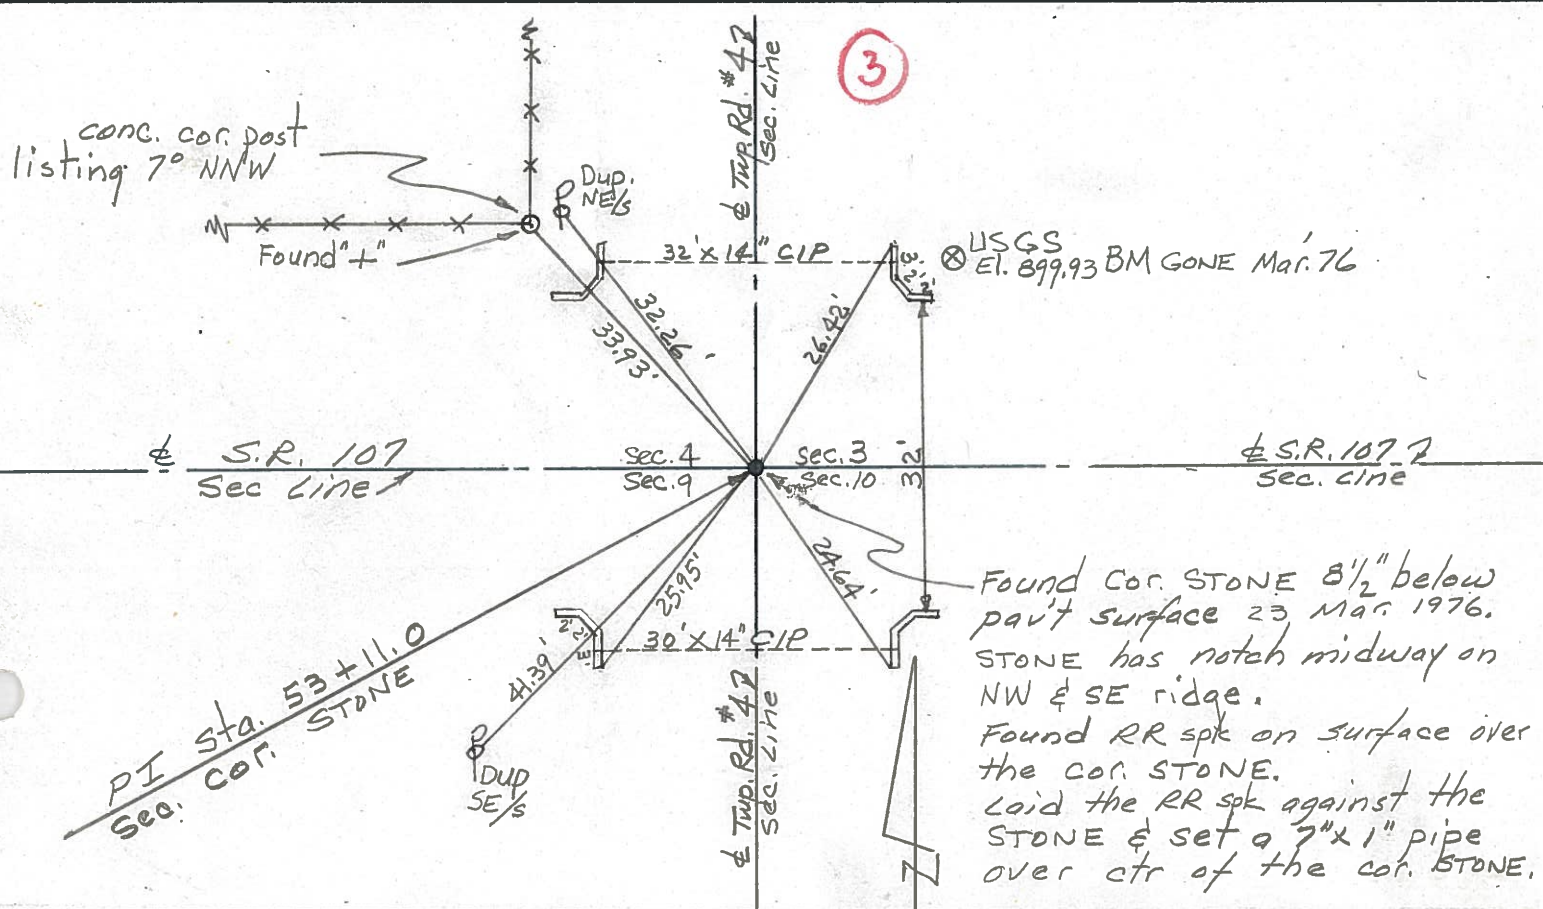 3
℄ Twp. Rd. #47
Sec. Line
conc. cor. post
listing 7° NNW
Dup.
NE/s
Found "+"
32' X 14" CIP
3' 2' 2'
USGS
El. 899.93 BM GONE Mar. '76
32.26'
33.93'
26.42'
℄ S.R. 107
Sec Line
Sec. 4
Sec. 9
Sec. 3
Sec. 10
32'
℄ S.R. 107
Sec. Line
25.95'
24.64'
2' 2' 3'
30' X 14" CIP
41.39'
PI Sta. 53+11.0
Sec. Cor. STONE
Dup
SE/s
℄ Twp. Rd. #47
Sec. Line
Found Cor. STONE 8½" below
pav't surface 23 Mar. 1976.
STONE has notch midway on
NW & SE ridge.
Found RR spk on surface over
the cor. STONE.
Laid the RR spk against the
STONE & set a 7" X 1" pipe
over ctr of the cor. STONE.